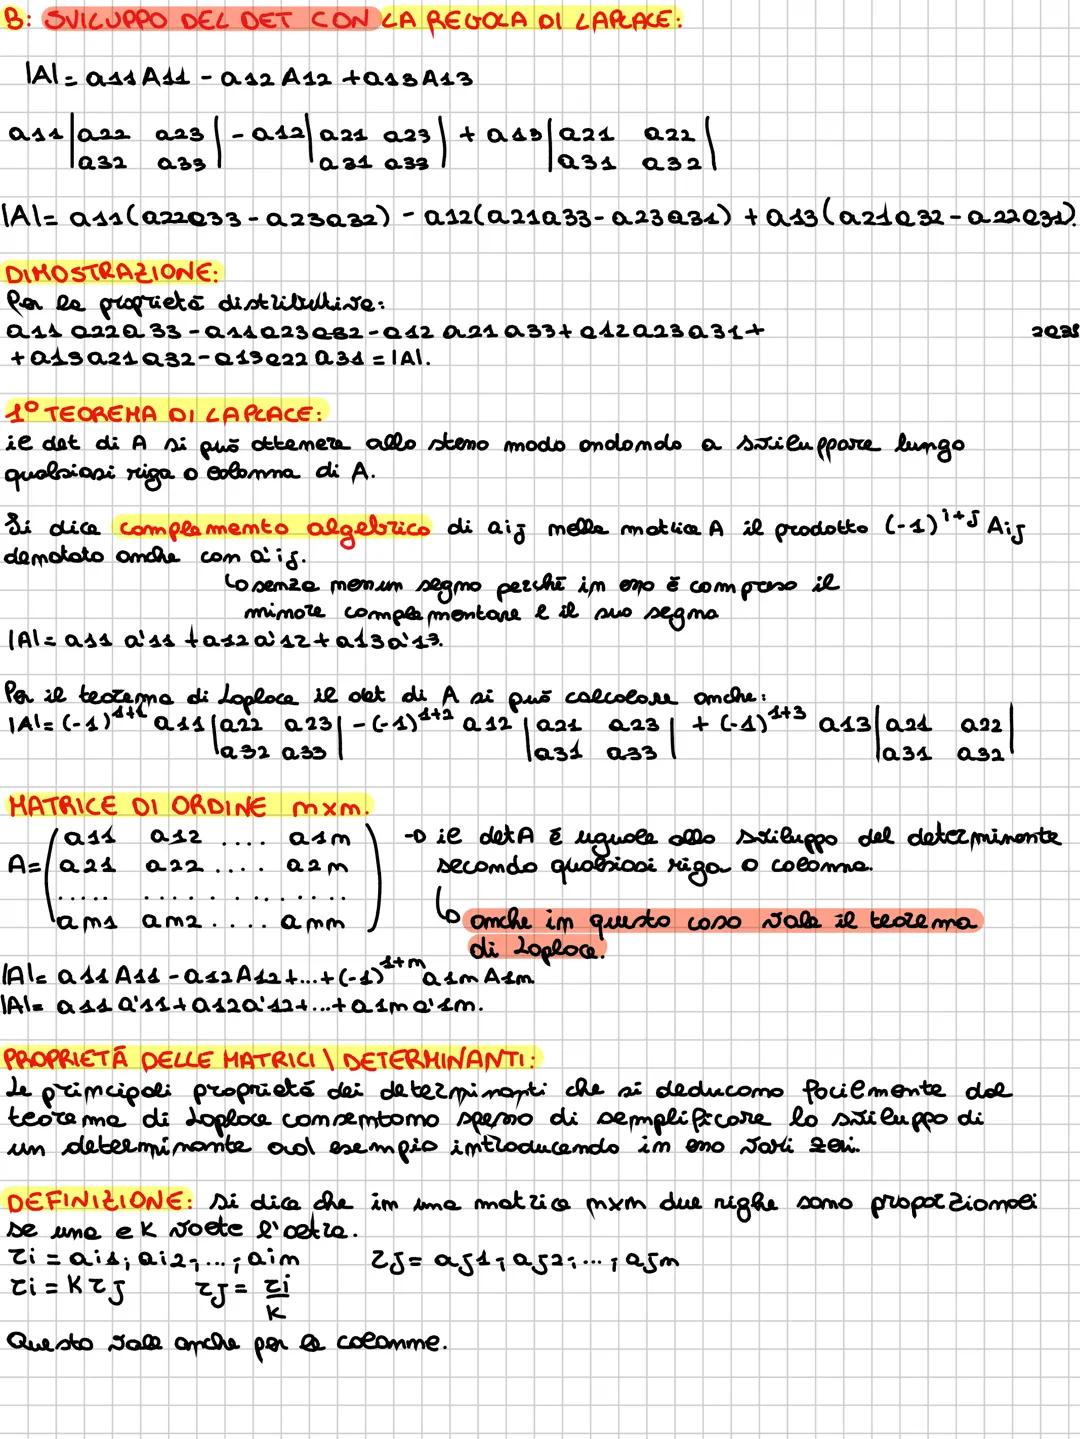 B: SVILUPPO DEL DET CON LA REGOLA DI LAPLACE:
|A| = a11 A11 - a12 A12 + a13 A13
a11 |a22 a23| - a12 |a21 a23| + a13 |a21 a22|
|a32 a33| |a31 a33| |a31 a32|
|A| = a11(a22a33 - a23a32) - a12(a21a33 - a23a31) + a13(a21a32 - a22a31).
DIMOSTRAZIONE:
Per la proprietà distributiva:
a11 a22a33 - a11a23a32 - a12 a21 a33 + a12a23a31 +
+ a13a21a32 - a13a22a31 = |A|.
1° TEOREMA DI LAPLACE:
il det di A si può ottenere allo stesso modo andando a sviluppare lungo
qualsiasi riga o colonna di A.
Si dice complemento algebrico di aij nella matrice A il prodotto (-1)^i+j Aij
denotato anche con a'ij.
↳ senza nessun segno perché in esso è compreso il
minore complementare e il suo segno
|A| = a11 a'11 + a12 a'12 + a13 a'13.
Per il teorema di Laplace il det di A si può calcolare anche:
|A| = (-1)^1+1 a11 |a22 a23| - (-1)^1+2 a12 |a21 a23| + (-1)^1+3 a13 |a21 a22|
|a32 a33| |a31 a33| |a31 a32|
MATRICE DI ORDINE nxn.
(a11 a12 .... a1n) → il detA è uguale allo sviluppo del determinante
A= a21 a22 .... a2n secondo qualsiasi riga o colonna.
..... . . . . . . . . . .
an1 an2 .... ann ↳ anche in questo caso vale il teorema
di Laplace.
|A| = a11 A11 - a12 A12 + ... + (-1)^1+n a1n A1n
|A| = a11 a'11 + a12 a'12 + ... + a1n a'1n.
PROPRIETÀ DELLE MATRICI \ DETERMINANTI:
Le principali proprietà dei determinanti che si deducono facilmente dal
teorema di Laplace consentono spesso di semplificare lo sviluppo di
un determinante ad esempio introducendo in esso vari zeri.
DEFINIZIONE: si dice che in una matrice nxn due righe sono proporzionali
se una è K volte l'altra.
ri = ai1; ai2; ...; ain rj = aj1; aj2; ...; ajn
ri = K rj rj = ri
K
Questo vale anche per le colonne.